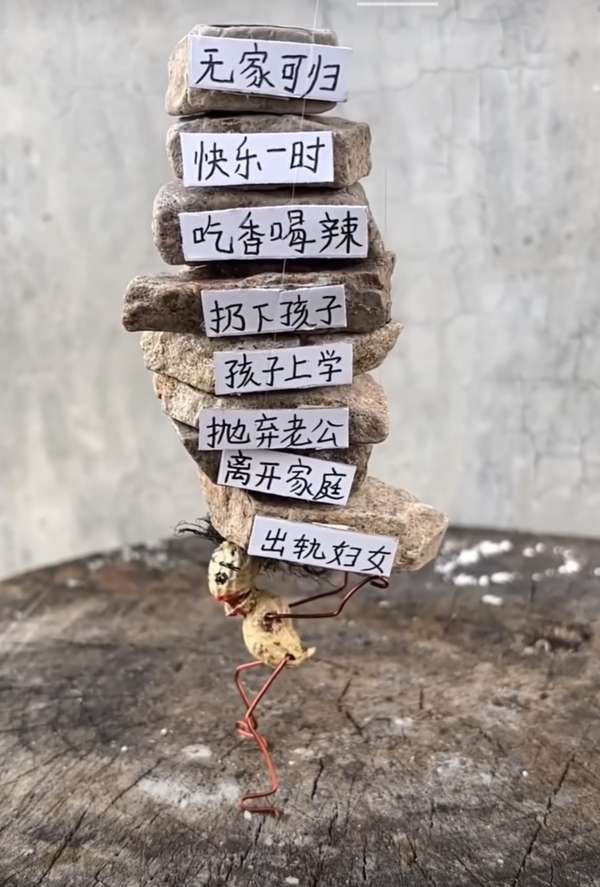 无家可归
快乐一时
吃香喝辣
扔下孩子
孩子上学
抛弃老公
离开家庭
出轨妇女